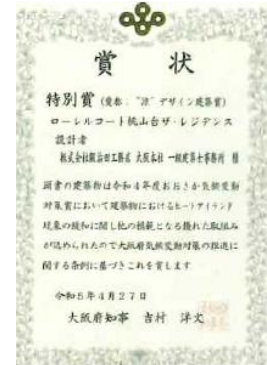 賞状
特別賞（愛称："涼"デザイン建築賞）
ローレルコート桃山台ザ・レジデンス
設計者
株式会社鍜治田工務店 大阪本社 一級建築士事務所 様
頭書の建築物は令和4年度おおさか気候変動
対策賞において建築物におけるヒートアイランド
現象の緩和に関し他の模範となる優れた取組み
が認められたので大阪府気候変動対策の推進に
関する条例に基づきこれを賞します
令和5年4月27日
大阪府知事 吉村 洋文